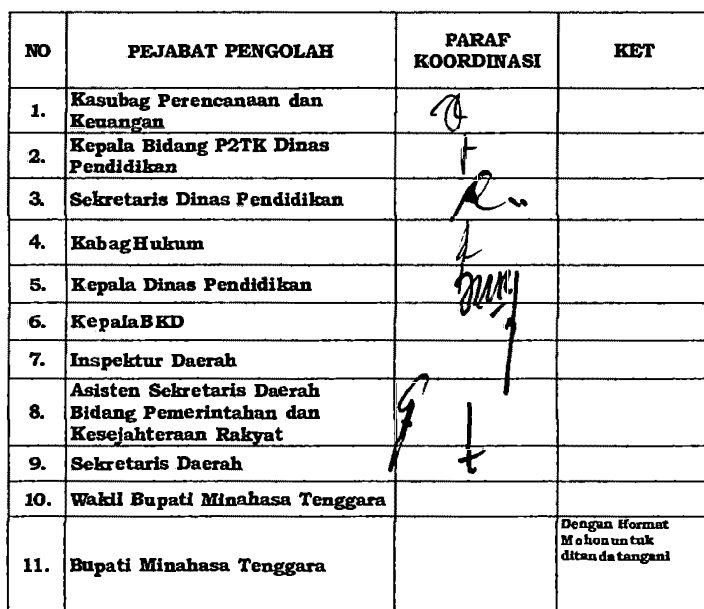 NO PEJABAT PENGOLAH PARAF KOORDINASI KET
1. Kasubag Perencanaan dan
Keuangan
2. Kepala Bidang P2TK Dinas
Pendidikan
3. Sekretaris Dinas Pendidikan
4. KabagHukum
5. Kepala Dinas Pendidikan
6. KepalaBKD
7. Inspektur Daerah
8. Asisten Sekretaris Daerah
Bidang Pemerintahan dan
Kesejahteraan Rakyat
9. Sekretaris Daerah
10. Wakil Bupati Minahasa Tenggara
11. Bupati Minahasa Tenggara
Dengan Hormat
Mohon untuk
ditandatangani